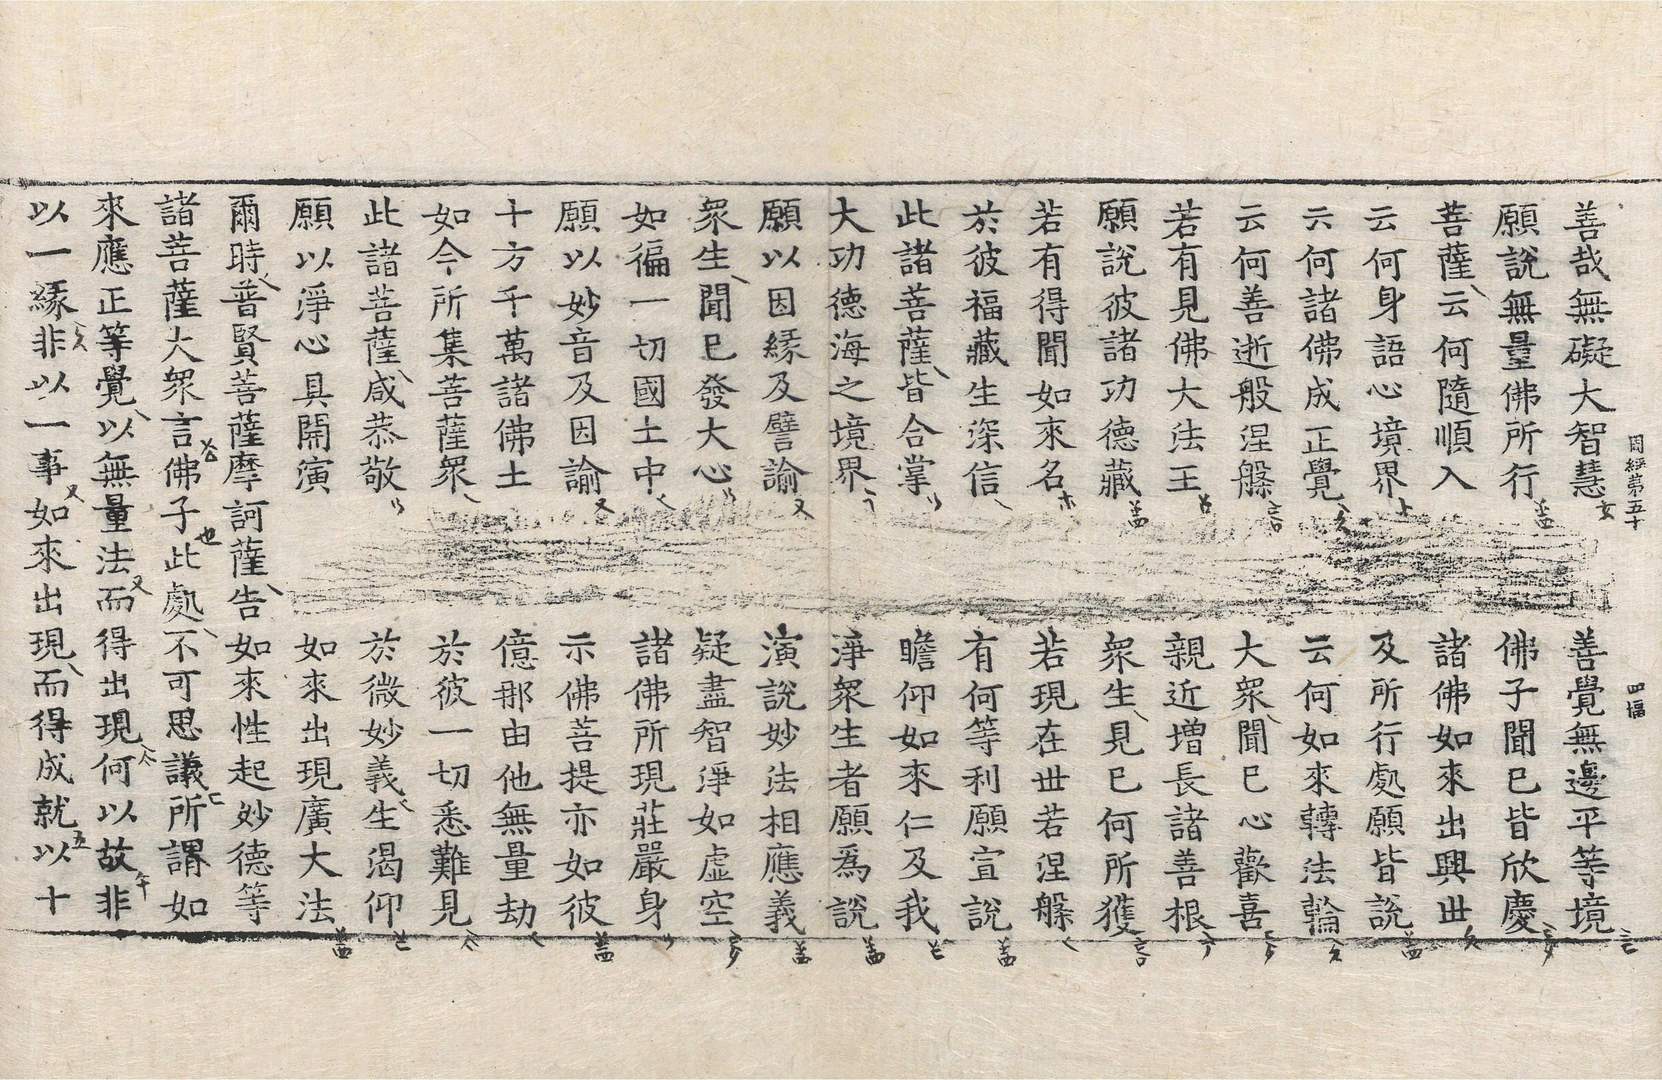 周經第五十　四幅
善哉無礙大智慧　善覺無邊平等境
願說無量佛所行　佛子聞已皆欣慶
菩薩云何隨順入　諸佛如來出興世
云何身語心境界　及所行處願皆說
云何諸佛成正覺　云何如來轉法輪
云何善逝般涅槃　大眾聞已心歡喜
若有見佛大法王　親近增長諸善根
願說彼諸功德藏　眾生見已何所獲
若有得聞如來名　若現在世若涅槃
於彼福藏生深信　有何等利願宣說
此諸菩薩皆合掌　瞻仰如來仁及我
大功德海之境界　淨眾生者願為說
願以因緣及譬諭　演說妙法相應義
眾生聞已發大心　疑盡智淨如虛空
如徧一切國土中　諸佛所現莊嚴身
願以妙音及因諭　示佛菩提亦如彼
十方千萬諸佛土　億那由他無量劫
如今所集菩薩眾　於彼一切悉難見
此諸菩薩咸恭敬　於微妙義生渴仰
願以淨心具開演　如來出現廣大法
爾時普賢菩薩摩訶薩告如來性起妙德等
諸菩薩大眾言佛子此處不可思議所謂如
來應正等覺以無量法而得出現何以故非
以一緣非以一事如來出現而得成就以十